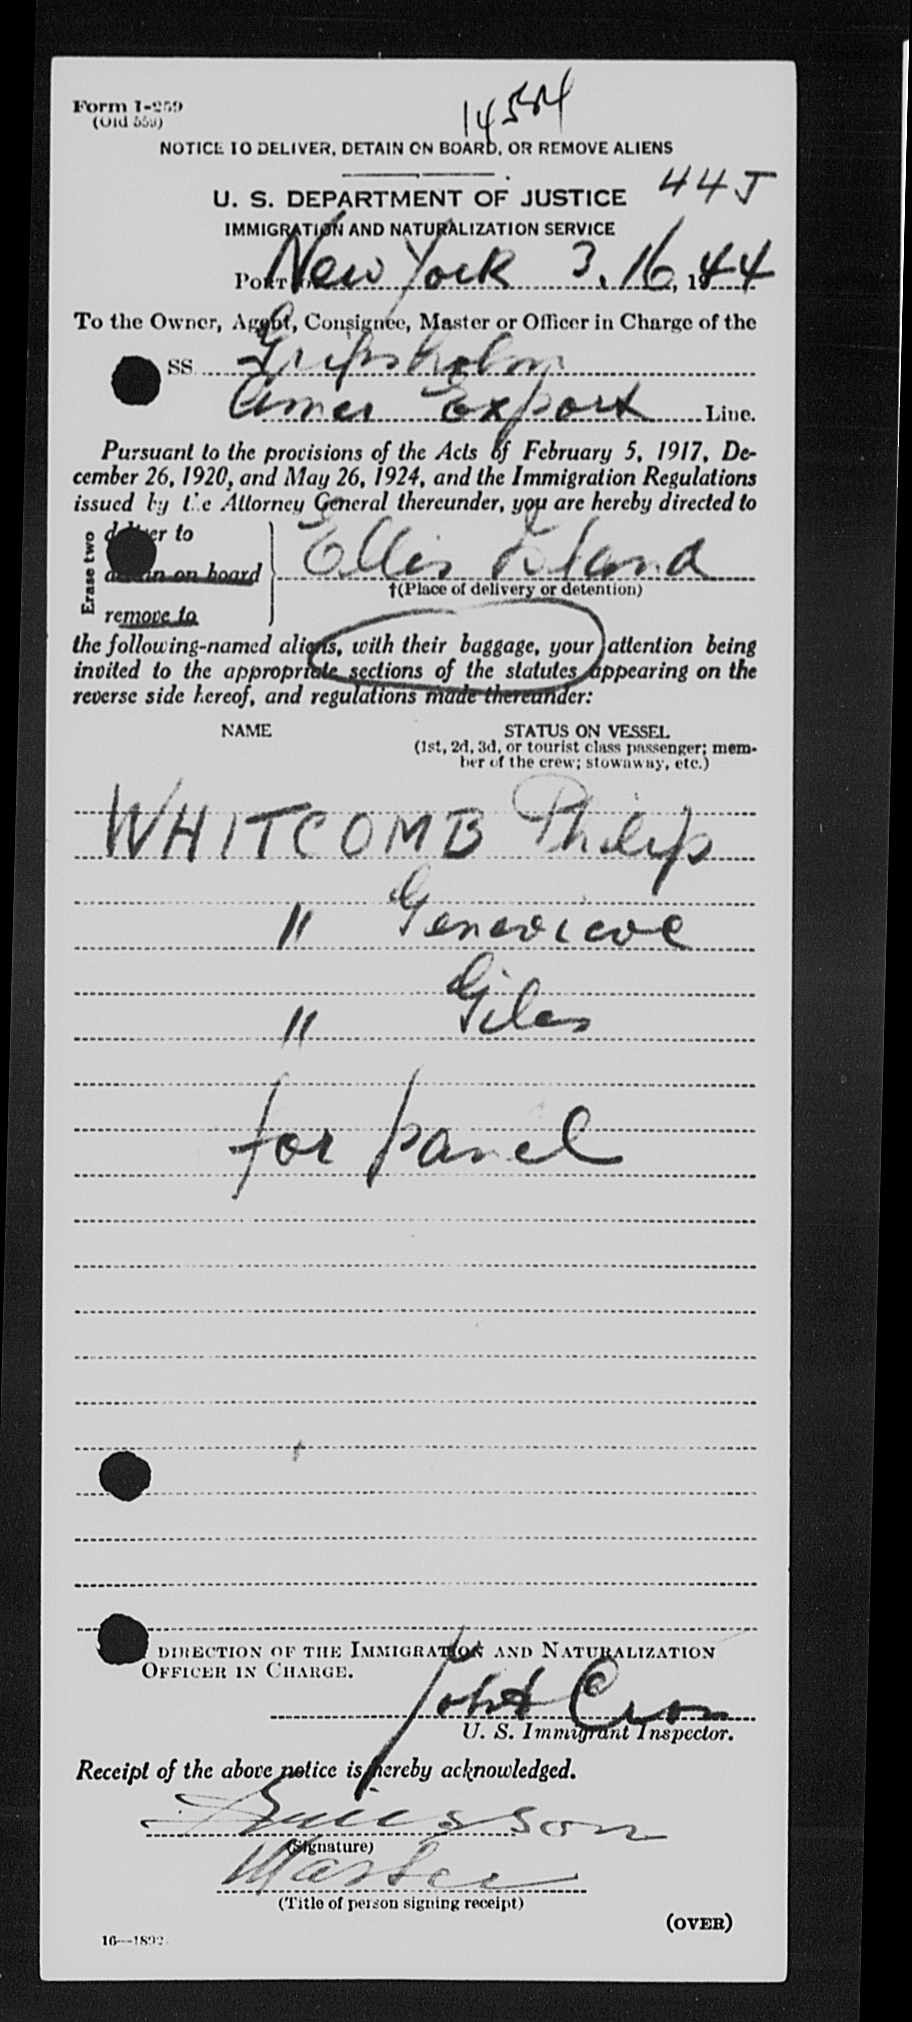 Form I-259
(Old 559)
14554
NOTICE TO DELIVER, DETAIN ON BOARD, OR REMOVE ALIENS
44 J
U. S. DEPARTMENT OF JUSTICE
IMMIGRATION AND NATURALIZATION SERVICE
Port of New York 3.16, 1944
To the Owner, Agent, Consignee, Master or Officer in Charge of the
SS. Gripsholm
Amer Export Line.
Pursuant to the provisions of the Acts of February 5, 1917, De-
cember 26, 1920, and May 26, 1924, and the Immigration Regulations
issued by the Attorney General thereunder, you are hereby directed to
Erase two
deliver to
detain on board
remove to
Ellis Island
†(Place of delivery or detention)
the following-named aliens, with their baggage, your attention being
invited to the appropriate sections of the statutes appearing on the
reverse side hereof, and regulations made thereunder:
NAME STATUS ON VESSEL
(1st, 2d, 3d, or tourist class passenger; mem-
ber of the crew; stowaway, etc.)
WHITCOMB Philip
" Genevieve
" Giles
for panel
DIRECTION OF THE IMMIGRATION AND NATURALIZATION
OFFICER IN CHARGE.
John A Cron
U. S. Immigrant Inspector.
Receipt of the above notice is hereby acknowledged.
Ericsson
(Signature)
Master
(Title of person signing receipt)
(OVER)
16—1892